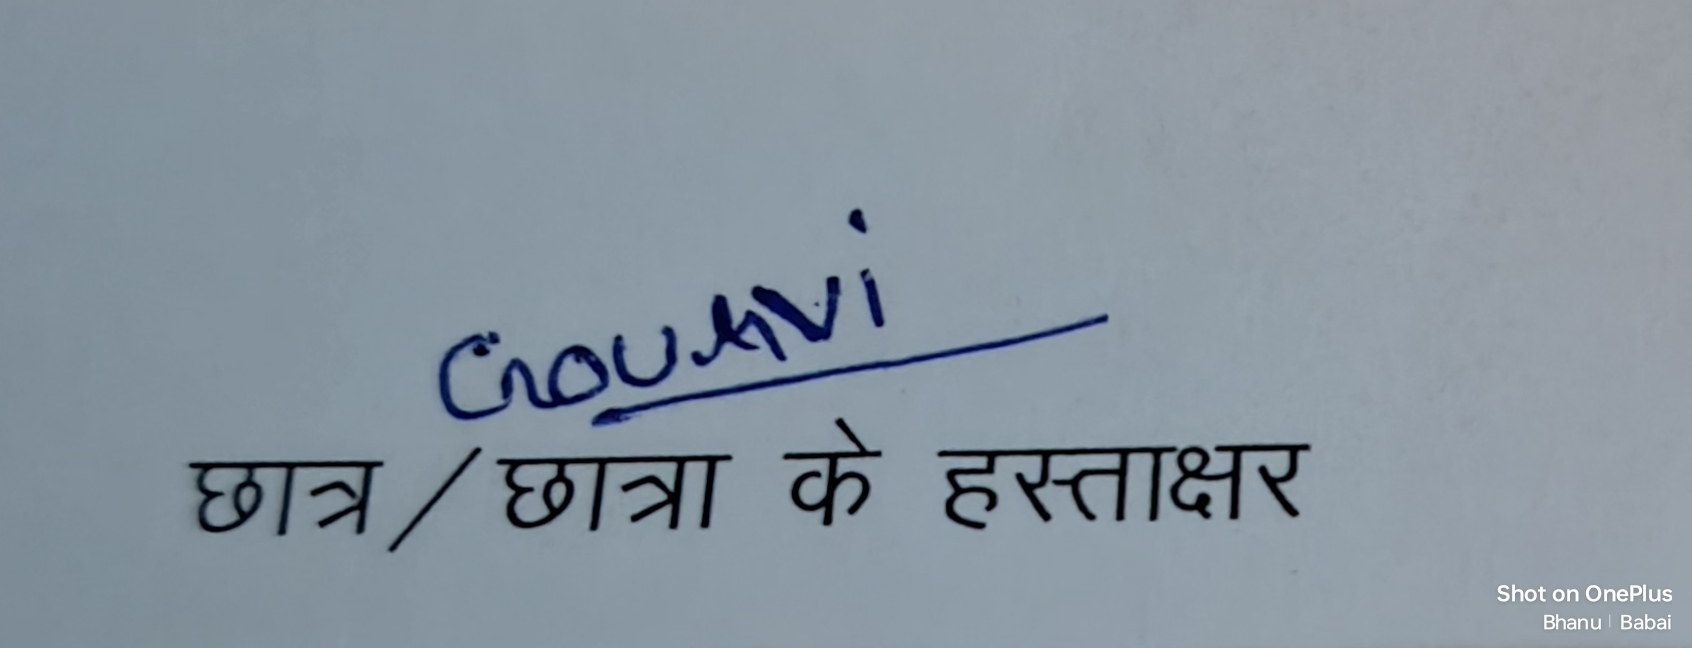 छात्र/छात्रा के हस्ताक्षर
Shot on OnePlus
Bhanu | Babai